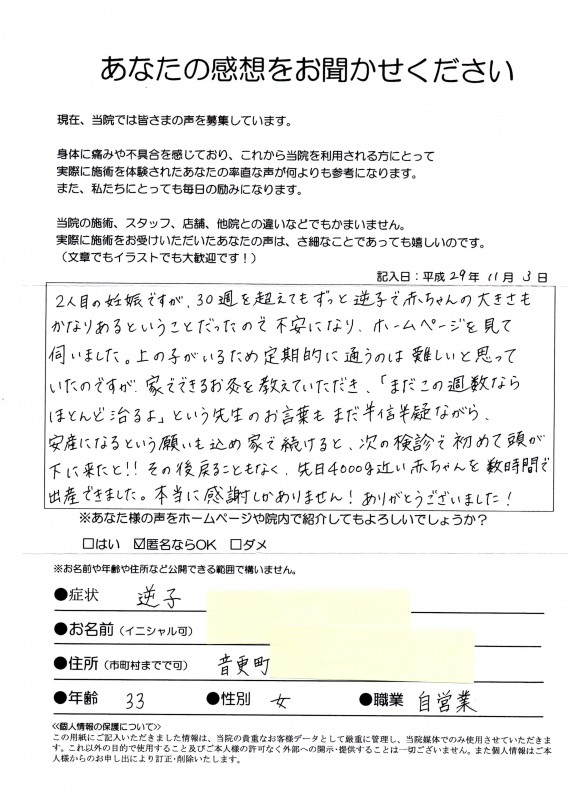 あなたの感想をお聞かせください
現在、当院では皆さまの声を募集しています。
身体に痛みや不具合を感じており、これから当院を利用される方にとって
実際に施術を体験されたあなたの率直な声が何よりも参考になります。
また、私たちにとっても毎日の励みになります。
当院の施術、スタッフ、店舗、他院との違いなどでもかまいません。
実際に施術をお受けいただいたあなたの声は、ささいなことであっても嬉しいのです。
（文章でもイラストでも大歓迎です！）
記入日：平成 29年 11月 3日
2人目の妊娠ですが、30週を超えてもずっと逆子で赤ちゃんの大きさも
かなりあるということだったので不安になり、ホームページを見て
伺いました。上の子がいるため定期的に通うのは難しいと思って
いたのですが、家でできるお灸を教えていただき、「まだこの週数なら
ほとんど治るよ」という先生のお言葉もまだ半信半疑ながら、
安産になるという願いも込め家で続けると、次の検診で初めて頭が
下に来たと!! その後戻ることもなく、先日4000g近い赤ちゃんを数時間で
出産できました。本当に感謝しかありません！ありがとうございました！
※あなた様の声をホームページや院内で紹介してもよろしいでしょうか？
□はい ☑匿名ならOK □ダメ
※お名前や年齢や住所など公開できる範囲で構いません。
●症状 逆子
●お名前（イニシャル可）
●住所（市町村までで可） 音更町
●年齢 33 ●性別 女 ●職業 自営業
≪個人情報の保護について≫
この用紙にご記入いただきました情報は、当院の貴重なお客様データとして厳重に管理し、当院媒体でのみ使用させていただきま
す。これ以外の目的で使用すること及びご本人様の許可なく外部への開示・提供することは一切ございません。また個人情報はご本
人様からのお申し出により訂正・削除いたします。